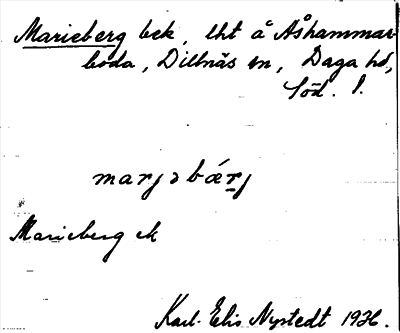 Marieberg bek, lht å Åshammar-
boda, Dillnäs sn, Daga hd,
Söd. l.
marjəbærj
Marieberg ek
Karl-Elis Nystedt 1936.